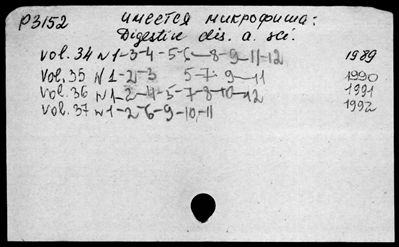 P3152 имеется микрофиша:
Digestive dis. a. sci.
vol. 34 N 1-3-4-5-6-8-9-11-12 1989
vol. 35 N 1-2-3 5-7-9-11 1990
vol. 36 N 1-2-4-5-7-8-10-12 1991
vol. 37 N 1-2-6-9-10-11 1992